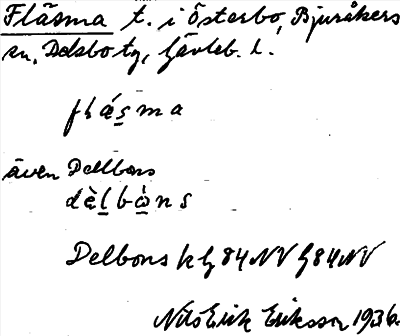 Fläsma t. i Österbo, Bjuråkers
sn, Delsbo tg, Gävleb. l.
flǽsma
även Delbons
dèlbòns
Delbons k bg 84NV bg 84NV
Nils Erik Eriksson 1936.